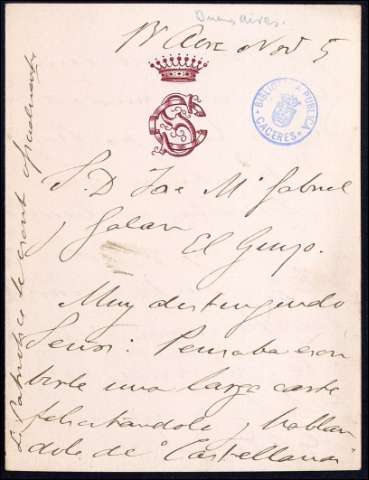 Buenos Aires.
Bs Aires Nov 5
BIBLIOTECA PUBLICA
CACERES
S. D. Jose Mª Gabriel
y Galan
El Guijo.
Muy distinguido
Señor: Pensaba escri
birle una larga carta
felicitandole y hablan
dole de "Castellanas"
La Patriotica le escribe oficialmente